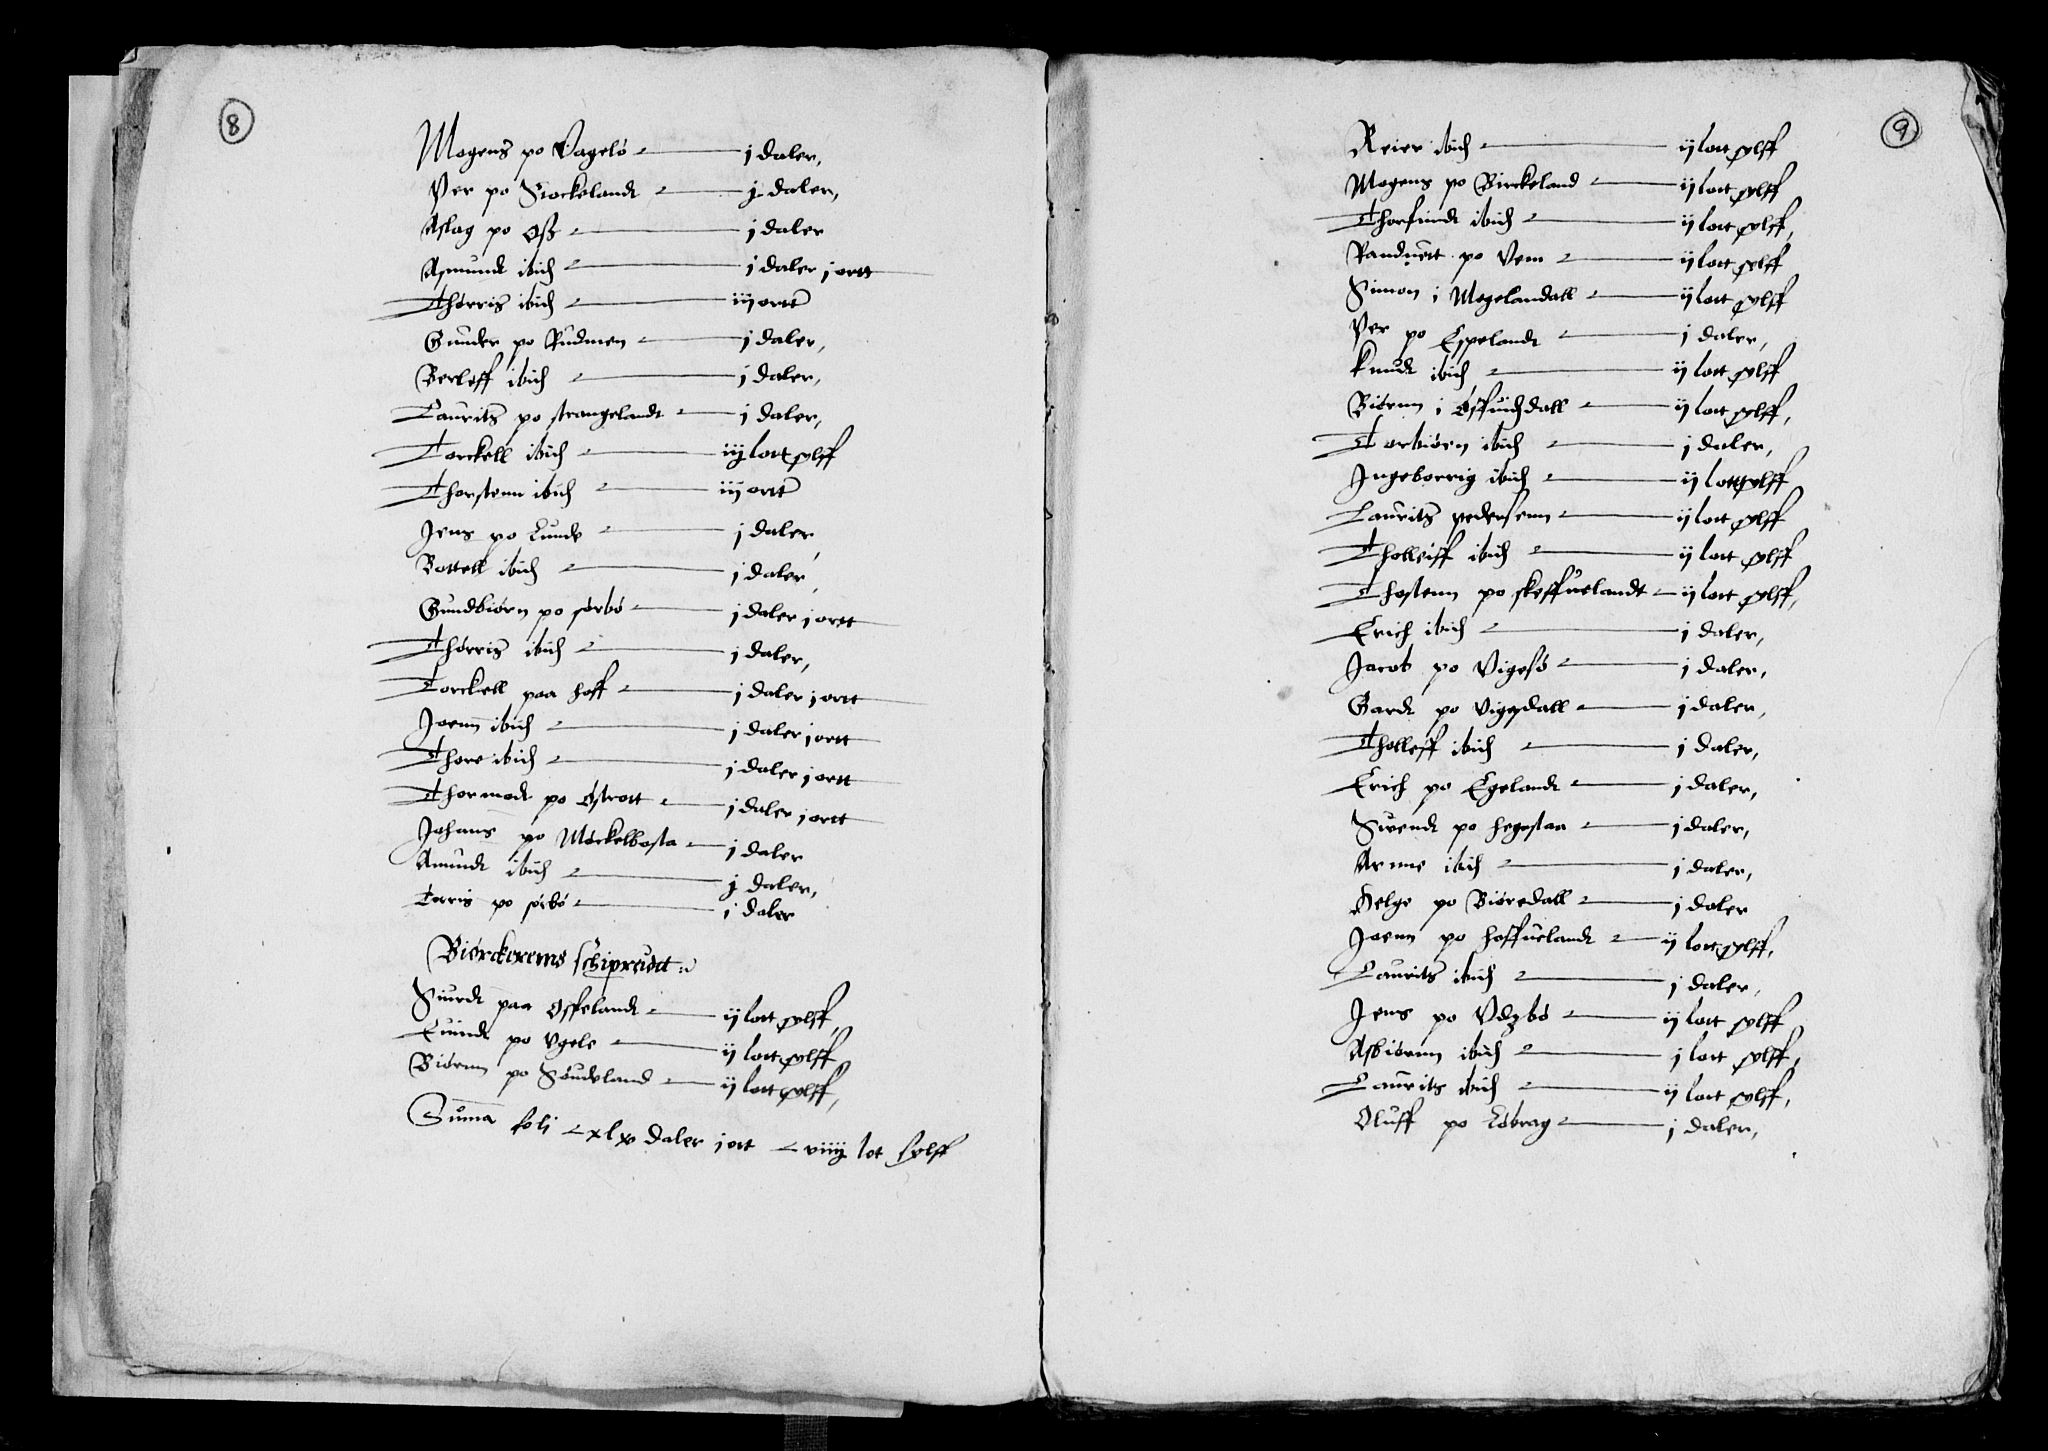 8
Mogens po Vagelø j daler,
Per po Stockelandt j daler,
Aslag po Oß j daler
Asmundt ibid j daler j ortt
Thorris ibid iij ortt
Gunder po Rudmen j daler,
Berleff ibid j daler,
Laurits po strangelandt j daler,
Torckell ibid iij lott sølff
Thorstenn ibid iij ortt
Jens po Lunde j daler,
Bottell ibid j daler,
Gundbiørn po sørbø j daler j ortt
Thorris ibid j daler,
Torckell paa hoff j daler j ortt
Joenn ibid j daler j ortt
Thore ibid j daler j ortt
Thormodt po Østrott j daler j ortt
Johans po Møckelbosta j daler
Amundt ibid j daler,
Torris po sørbø j daler
Biørckrems schipreidt
Siurdt paa Ospelandt ij lott sølff,
Euindt po Vgele ij lott sølff
Biørnn po Søudeland ij lott sølff,
Suma folj xlv daler j ort viiij lot sølff
9
Reier ibid ij lott sølff
Mogens po Birckeland ij lott sølff
Thorfindt ibid ij lott sølff,
Randuett po Vem ij lott sølff
Simon i Mogelandall ij lott sølff
Per po Espelandt j daler,
Knudt ibid ij lott sølff
Biørnn i Østuiddall ij lott sølff,
Torbiørn ibid j daler,
Ingeborrig ibid ij lott sølff
Laurits pedersenn ij lott sølff
Tholleiff ibid ij lott sølff
Thostenn po skeffuelandt ij lott sølff,
Erich ibid j daler,
Jacob po Vigesø j daler,
Gardt po Vigesdall j daler,
Tholleff ibid j daler,
Erich po Egelandt j daler,
Suendt po hegestaa j daler,
Arnne ibid j daler,
Helge po Biøredall j daler
Joenn po hoffuelandt ij lott sølff,
Laurits ibid j daler,
Jens po Vdzbø ij lott sølff
Asbiørnn ibid j lott sølff,
Laurits ibid ij lott sølff,
Oluff po Løbrag j daler,